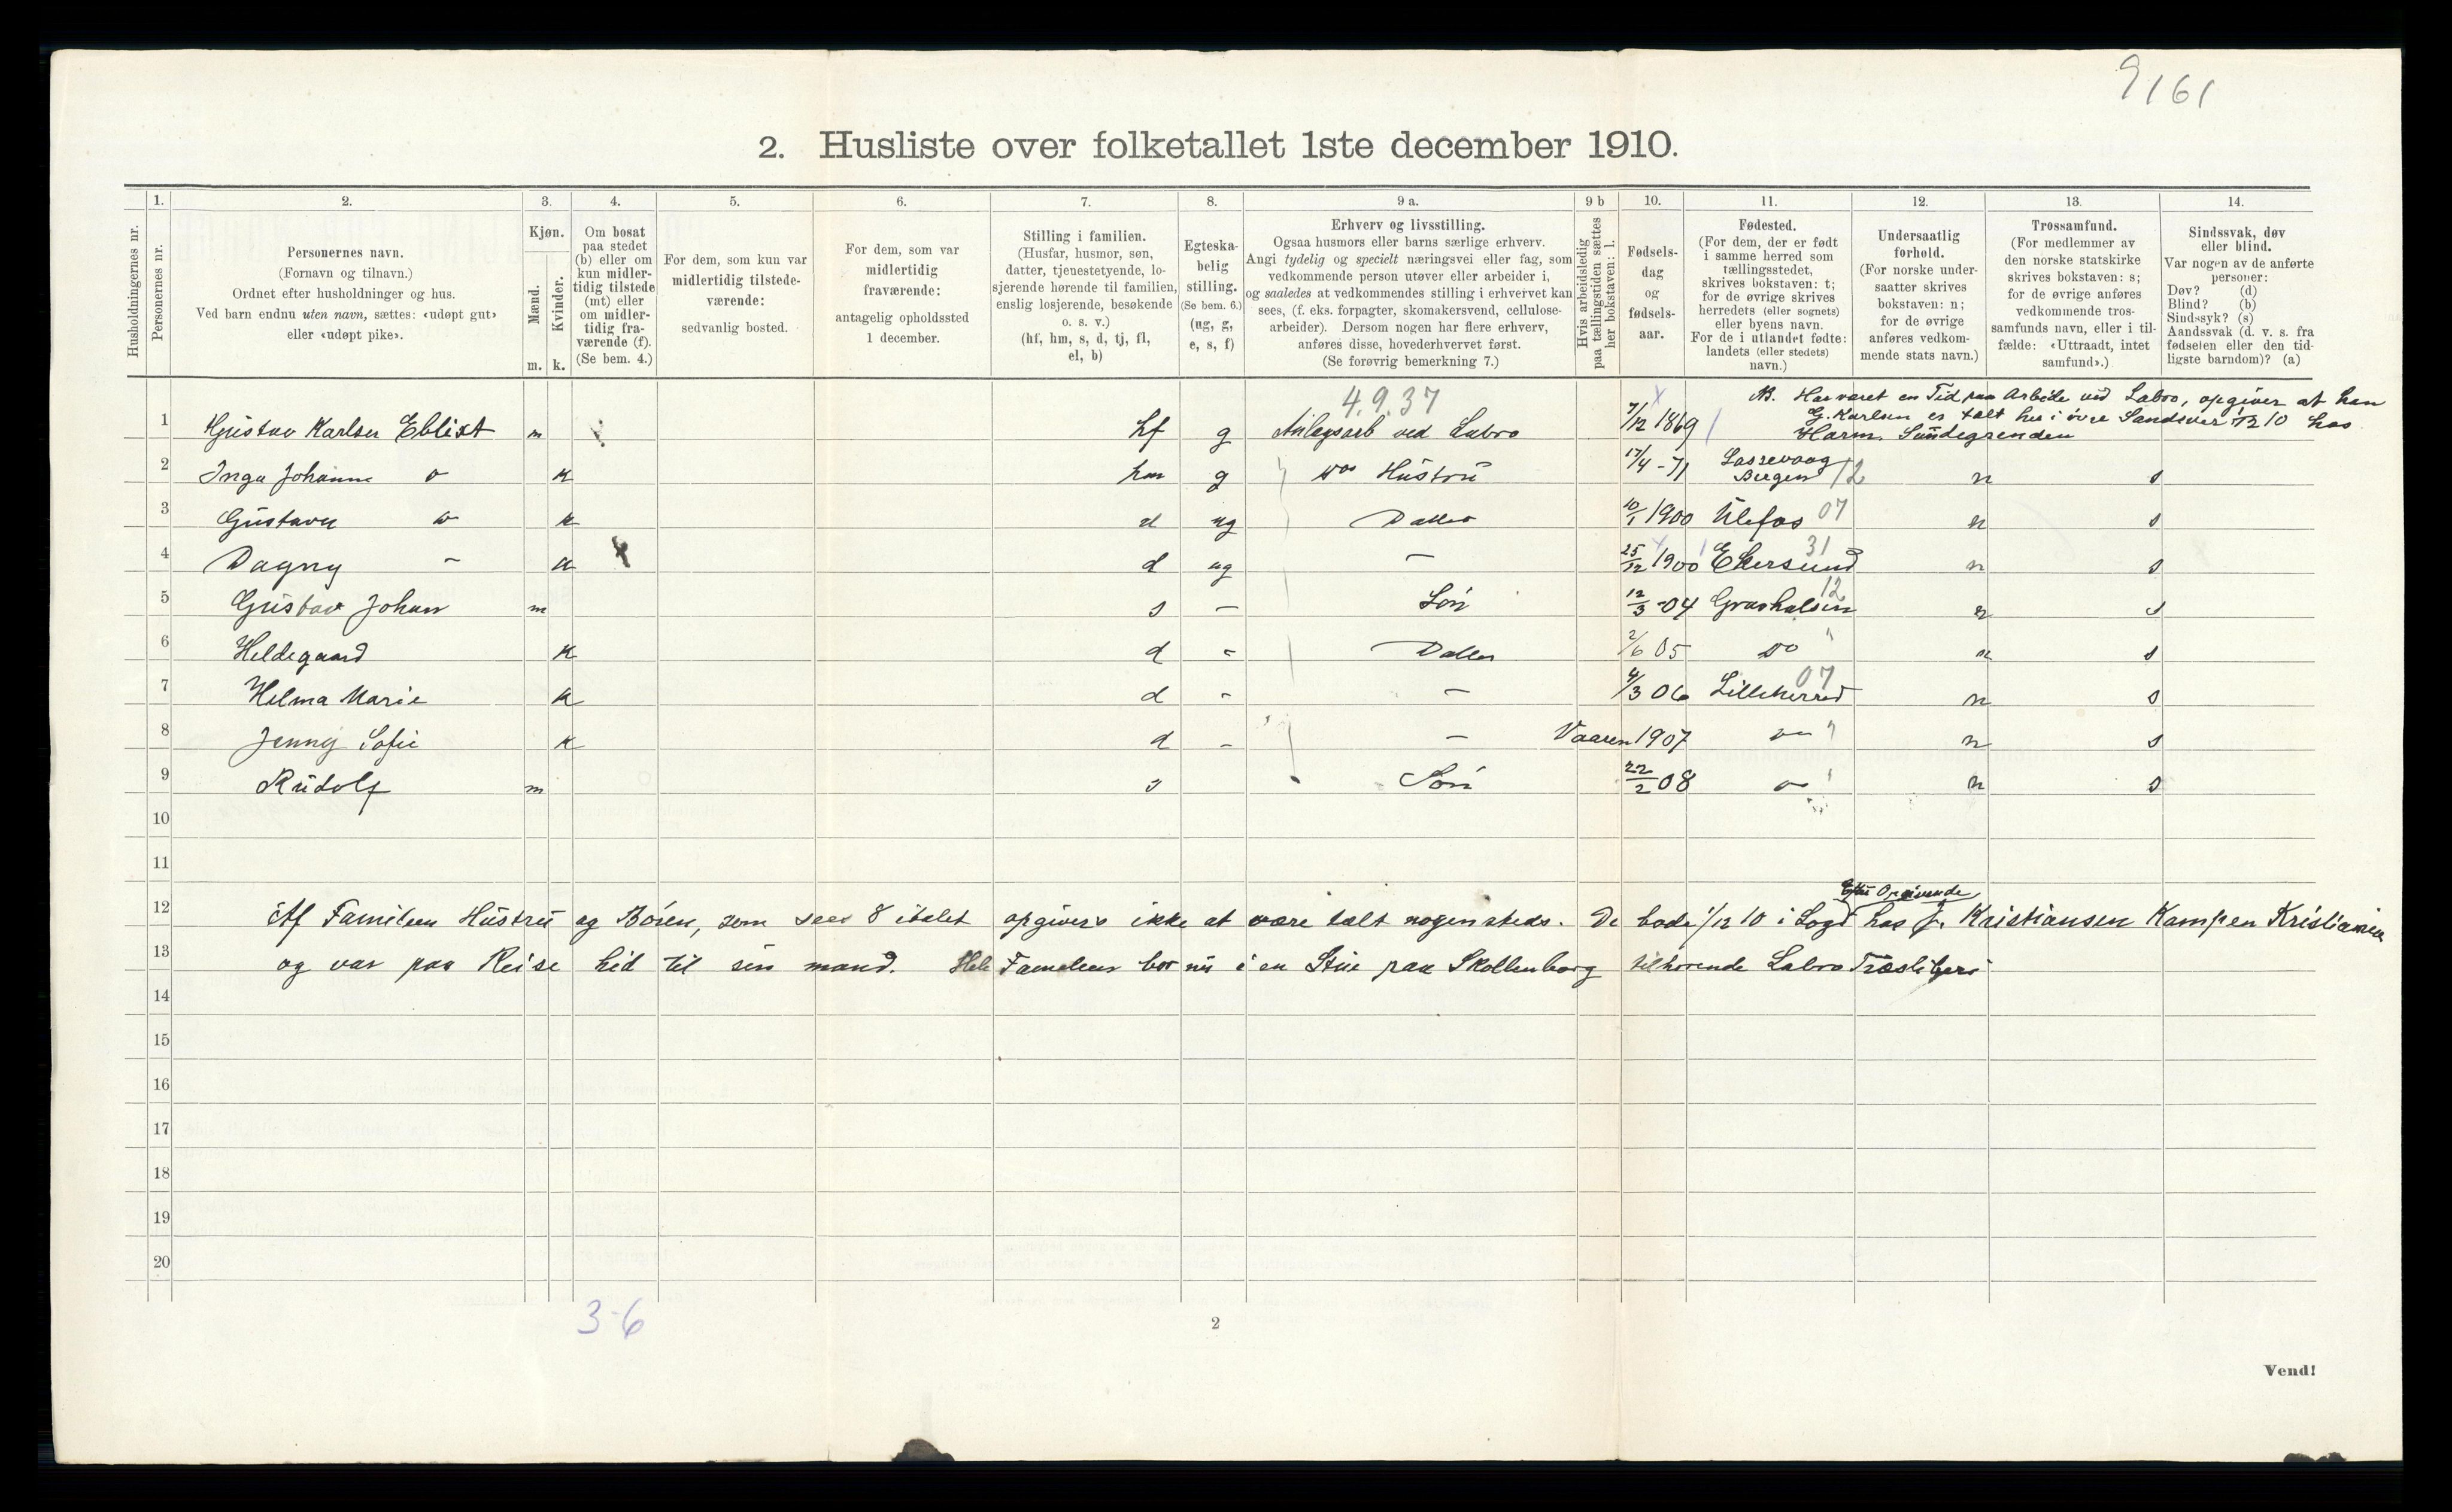 9161
2. Husliste over folketallet 1ste december 1910.
1. 2. 3. 4. 5. 6. 7. 8. 9 a. 9 b 10. 11. 12. 13. 14.
Husholdningernes nr.
Personernes nr.
Personernes navn.
(Fornavn og tilnavn.)
Ordnet efter husholdninger og hus.
Ved barn endnu uten navn, sættes: «udøpt gut»
eller «udøpt pike».
Kjøn.
Mænd.
Kvinder.
m. k.
Om bosat
paa stedet
(b) eller om
kun midler-
tidig tilstede
(mt) eller
om midler-
tidig fra-
værende (f).
(Se bem. 4.)
For dem, som kun var
midlertidig tilstede-
værende:
sedvanlig bosted.
For dem, som var
midlertidig
fraværende:
antagelig opholdssted
1 december.
Stilling i familien.
(Husfar, husmor, søn,
datter, tjenestetyende, lo-
sjerende hørende til familien,
enslig losjerende, besøkende
o. s. v.)
(hf, hm, s, d, tj, fl,
el, b)
Egteska-
belig
stilling.
(Se bem. 6.)
(ug, g,
e, s, f)
Erhverv og livsstilling.
Ogsaa husmors eller barns særlige erhverv.
Angi tydelig og specielt næringsvei eller fag, som
vedkommende person utøver eller arbeider i,
og saaledes at vedkommendes stilling i erhvervet kan
sees, (f. eks. forpagter, skomakersvend, cellulose-
arbeider). Dersom nogen har flere erhverv,
anføres disse, hovederhvervet først.
(Se forøvrig bemerkning 7.)
Hvis arbeidsledig
paa tællingstiden sættes
her bokstaven: l.
Fødsels-
dag
og
fødsels-
aar.
Fødested.
(For dem, der er født
i samme herred som
tællingsstedet,
skrives bokstaven: t;
for de øvrige skrives
herredets (eller sognets)
eller byens navn.
For de i utlandet fødte:
landets (eller stedets)
navn.)
Undersaatlig
forhold.
(For norske under-
saatter skrives
bokstaven: n;
for de øvrige
anføres vedkom-
mende stats navn.)
Trossamfund.
(For medlemmer av
den norske statskirke
skrives bokstaven: s;
for de øvrige anføres
vedkommende tros-
samfunds navn, eller i til-
fælde: «Uttraadt, intet
samfund».)
Sindssvak, døv
eller blind.
Var nogen av de anførte
personer:
Døv? (d)
Blind? (b)
Sindssyk? (s)
Aandssvak (d. v. s. fra
fødselen eller den tid-
ligste barndom)? (a)
4.9.37
NB. Har været en Tid paa Arbeide ved Labro, opgiver at han
G. Karlsen er talt her i övre Sandsver 1/12 10 hos
Harm. Sundegrenden
1 Gustav Karlsen Eblixt m hf g Anlegsarb ved Labro 7/12 1869
2 Inga Johanne o k hm g Hustru 17/4 - 71 Laxevaag Bergen 12 n s
3 Gustava k d ug Datter 10/1 1900 Ulefos 07 n s
4 Dagny - k d ug - 25/12 1900 Ekersund 31 n s
5 Gustav Johan m s - Sön 12/3 -04 12 n s
6 Heldegaard k d - Datter 2/6 05 do " n s
7 Helma Marie k d - - 4/3 06 Lilleherred 07 n s
8 Jenny Sofie k d - - Vaaren 1907 " n s
9 Rudolf m s Sön 22/2 08 n s
10
11
Efter Opgivende
12 Af Familien Hustru og Börn, som sees 8 i talet opgives ikke at være talt nogensteds. De bode 1/12 10 i Logi hos Kristiansen Kampen Kristiania
13 og var paa Reise hid til sin mand. Hele Familien bor nu i en Stue paa Skollenborg tilhørende Labro Træsliberi
14
15
16
17
18
19
20
3-6
2
Vend!